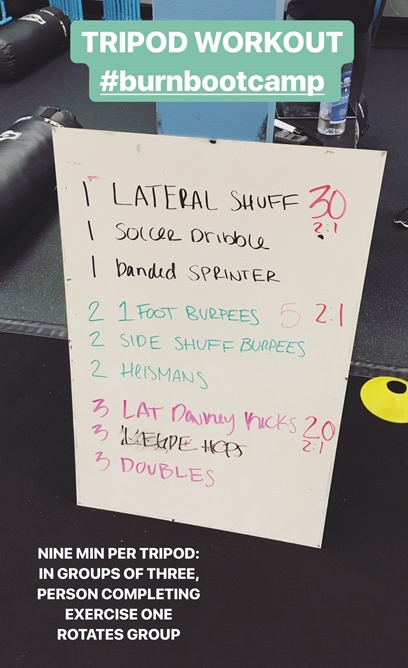 TRIPOD WORKOUT
#burnbootcamp
1 LATERAL SHUFF 30
2:1
1 SOCCER Dribble
1 banded SPRINTER
2 1 FOOT BURPEES 5 2:1
2 SIDE SHUFF BURPEES
2 HEISMANS
3 LAT Donkey Kicks 20
2:1
3 HOPS
3 DOUBLES
NINE MIN PER TRIPOD:
IN GROUPS OF THREE,
PERSON COMPLETING
EXERCISE ONE
ROTATES GROUP